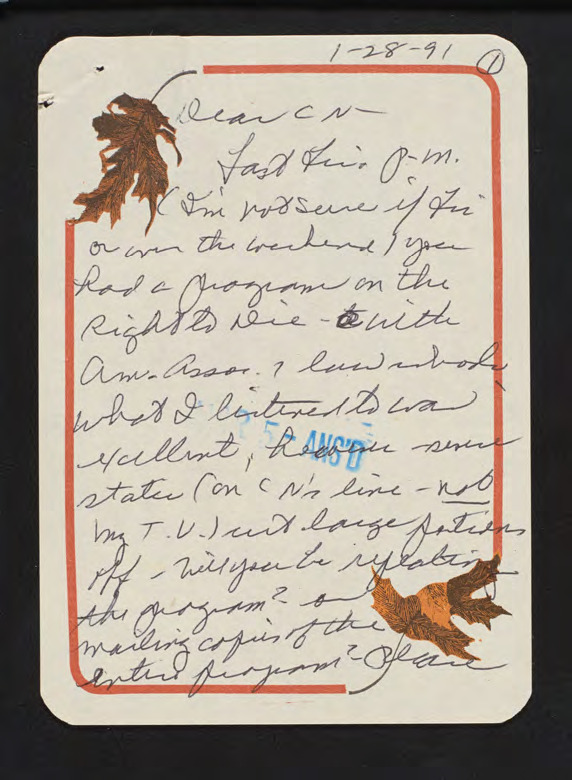 1-28-91 ①
Dear CN-
Last Fri. P.M.
(I'm not sure if Fri
or over the weekend) you
had a program on the
Right to Die - with
Am. Assoc. ? law
what I listened to was
excellent, however
static (on CN's line - not
my T.V.) cut large potions
off - Will you be repeating
the program? or
mailing copies of the
entire program? - Please
ANS'D